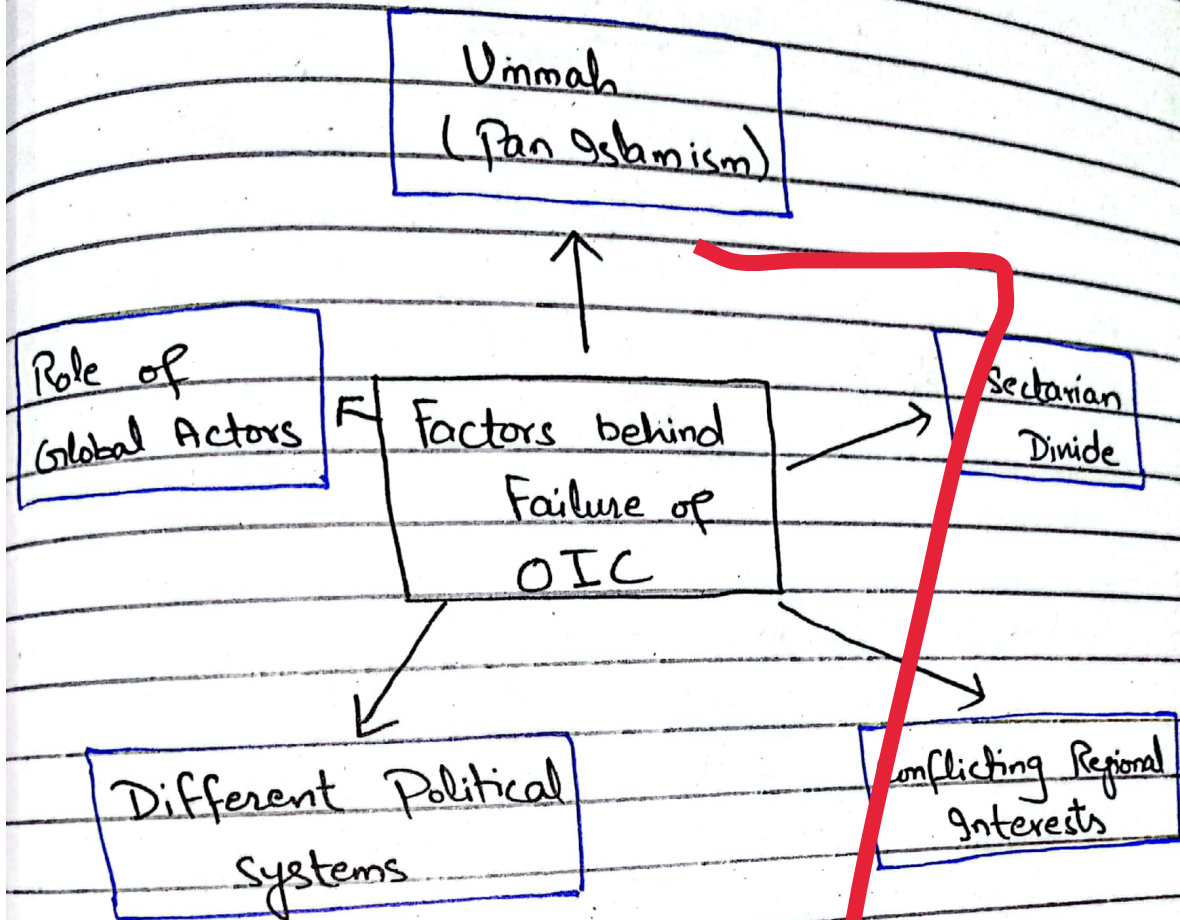 Ummah
(Pan Islamism)
Role of
Global Actors
Factors behind
Failure of
OIC
Sectarian
Divide
Different Political
systems
Conflicting Regional
Interests